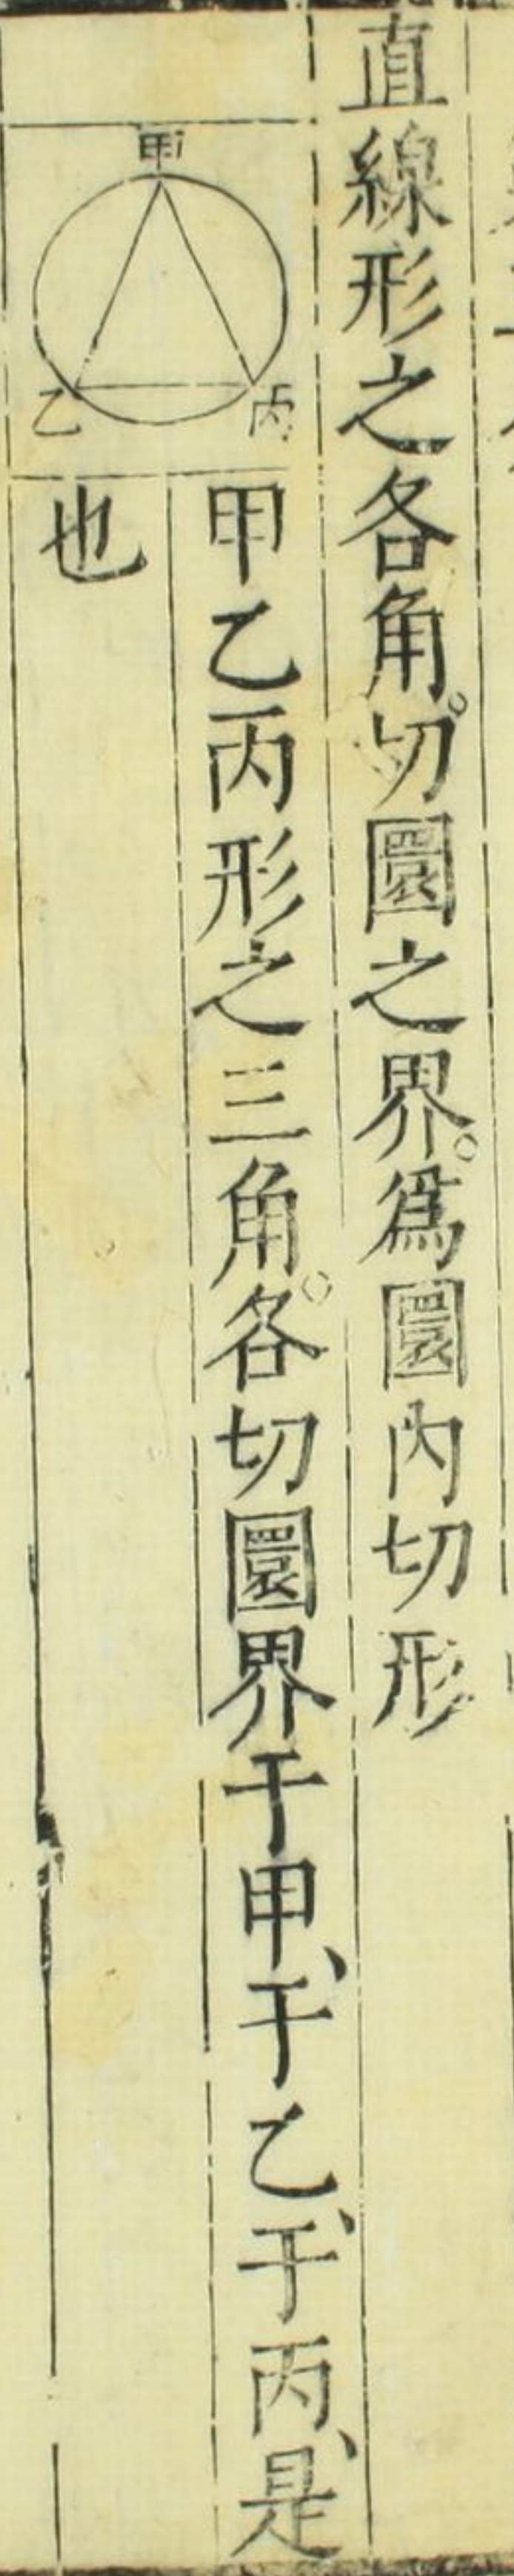 直線形之各角。切圜之界。爲圜內切形
甲
乙
丙
甲乙丙形之三角。各切圜界于甲、于乙、于丙、是
也